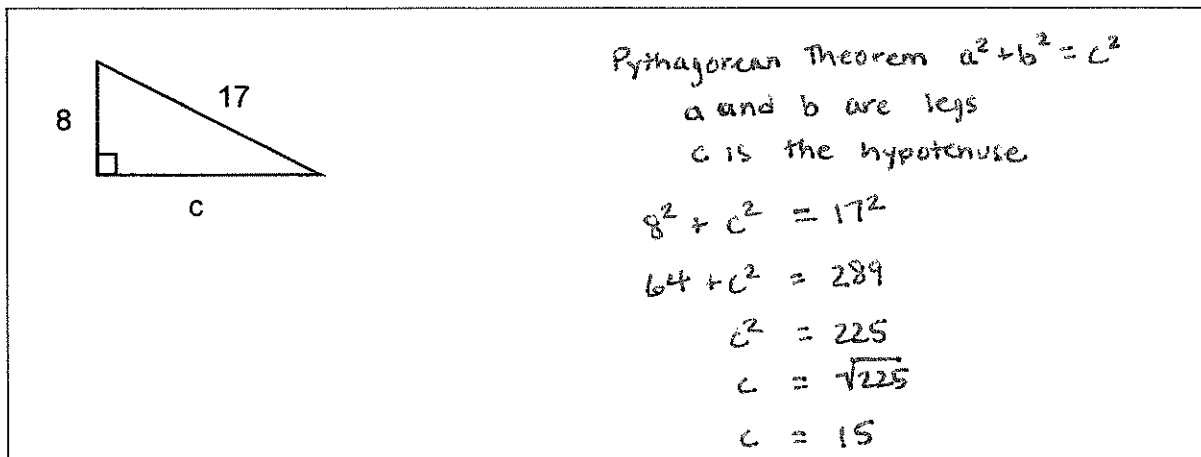 17
8
c
Pythagorean Theorem a² + b² = c²
a and b are legs
c is the hypotenuse
8² + c² = 17²
64 + c² = 289
c² = 225
c = √225
c = 15